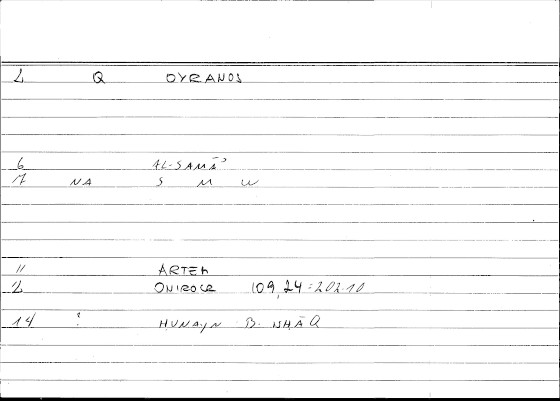 2 Q OYRANOS
6 AL-SAMĀʾ
17 NA S M W
11 ARTEM
2 ONIROCR 109,24 = 202.10
14 : HUNAYN B. ISHĀQ